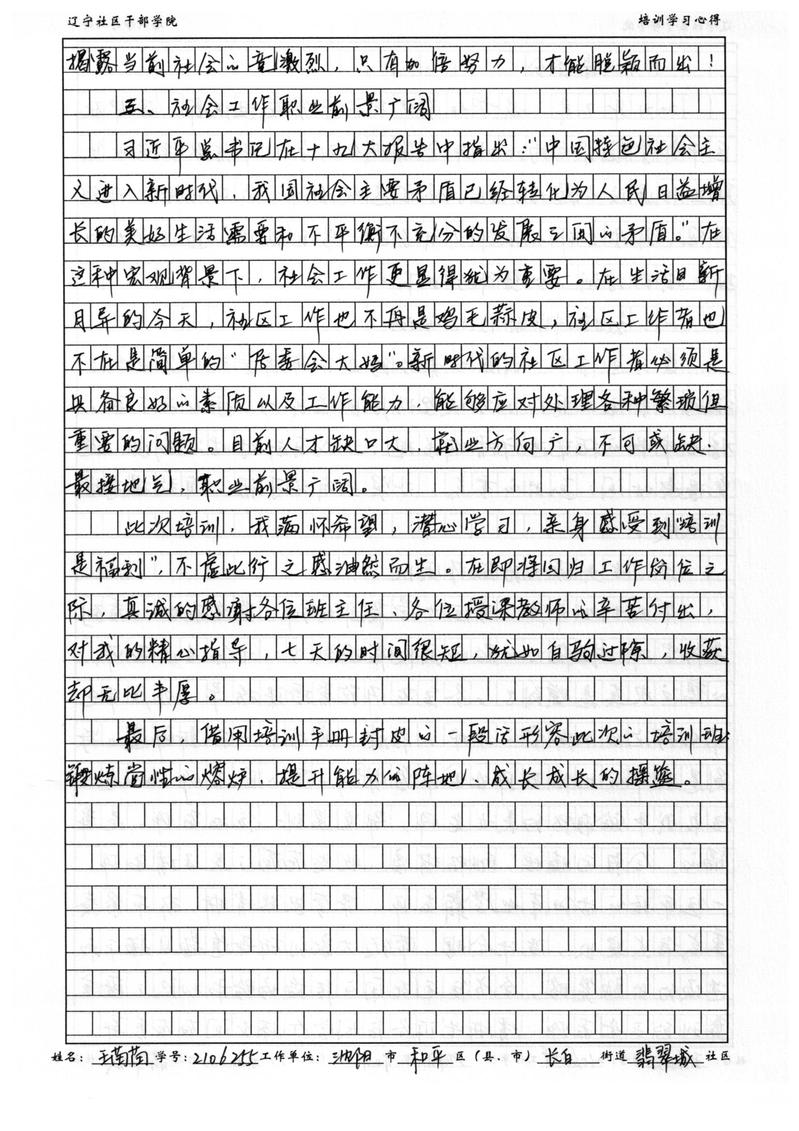 辽宁社区干部学院 培训学习心得
揭露当前社会的竞激烈，只有加倍努力，才能脱颖而出！
五、社会工作职业前景广阔
习近平总书记在十九大报告中指出："中国特色社会主
义进入新时代，我国社会主要矛盾已经转化为人民日益增
长的美好生活需要和不平衡不充分的发展之间的矛盾。"在
这种宏观背景下，社会工作更显得犹为重要。在生活日新
月异的今天，社区工作也不再是鸡毛蒜皮，社区工作者也
不在是简单的"居委会大妈"。新时代的社区工作者必须是
具备良好的素质以及工作能力，能够应对处理各种繁琐但
重要的问题。目前人才缺口大，就业方向广，不可或缺、
最接地气，职业前景广阔。
此次培训，我满怀希望，潜心学习，亲身感受到"培训
是福利"，不虚此行之感油然而生。在即将回归工作岗位之
际，真诚的感谢各位班主任、各位授课教师的辛苦付出，
对我的精心指导，七天的时间很短，犹如白驹过隙，收获
却无比丰厚。
最后，借用培训手册封皮的一段话形容此次的培训班：
锻炼党性的熔炉、提升能力的阵地、成长成长的摇篮。
姓名：王茵茵 学号：2106255 工作单位：沈阳 市 和平 区（县、市） 长白 街道 翡翠城 社区